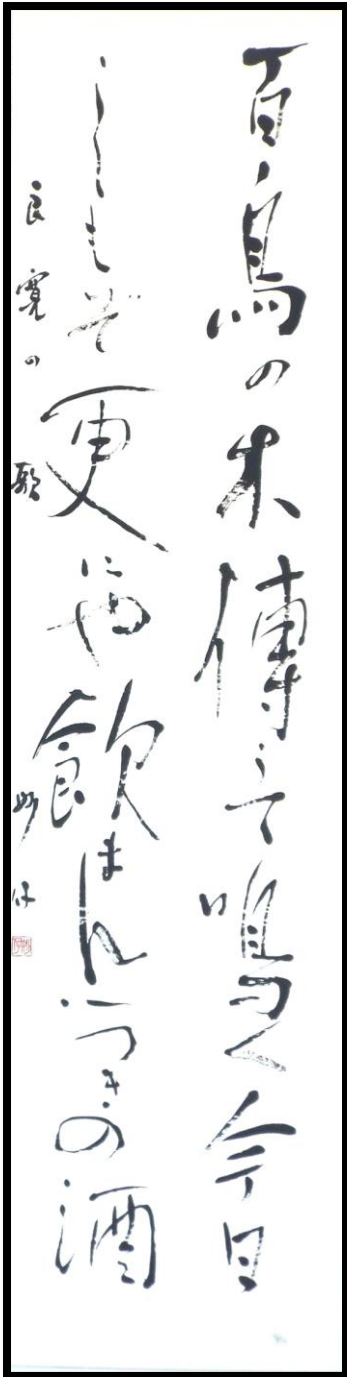 百鳥の木傳うて鳴く今日
しもぞ更にや飲まん一つきの酒
良寛の歌 妙